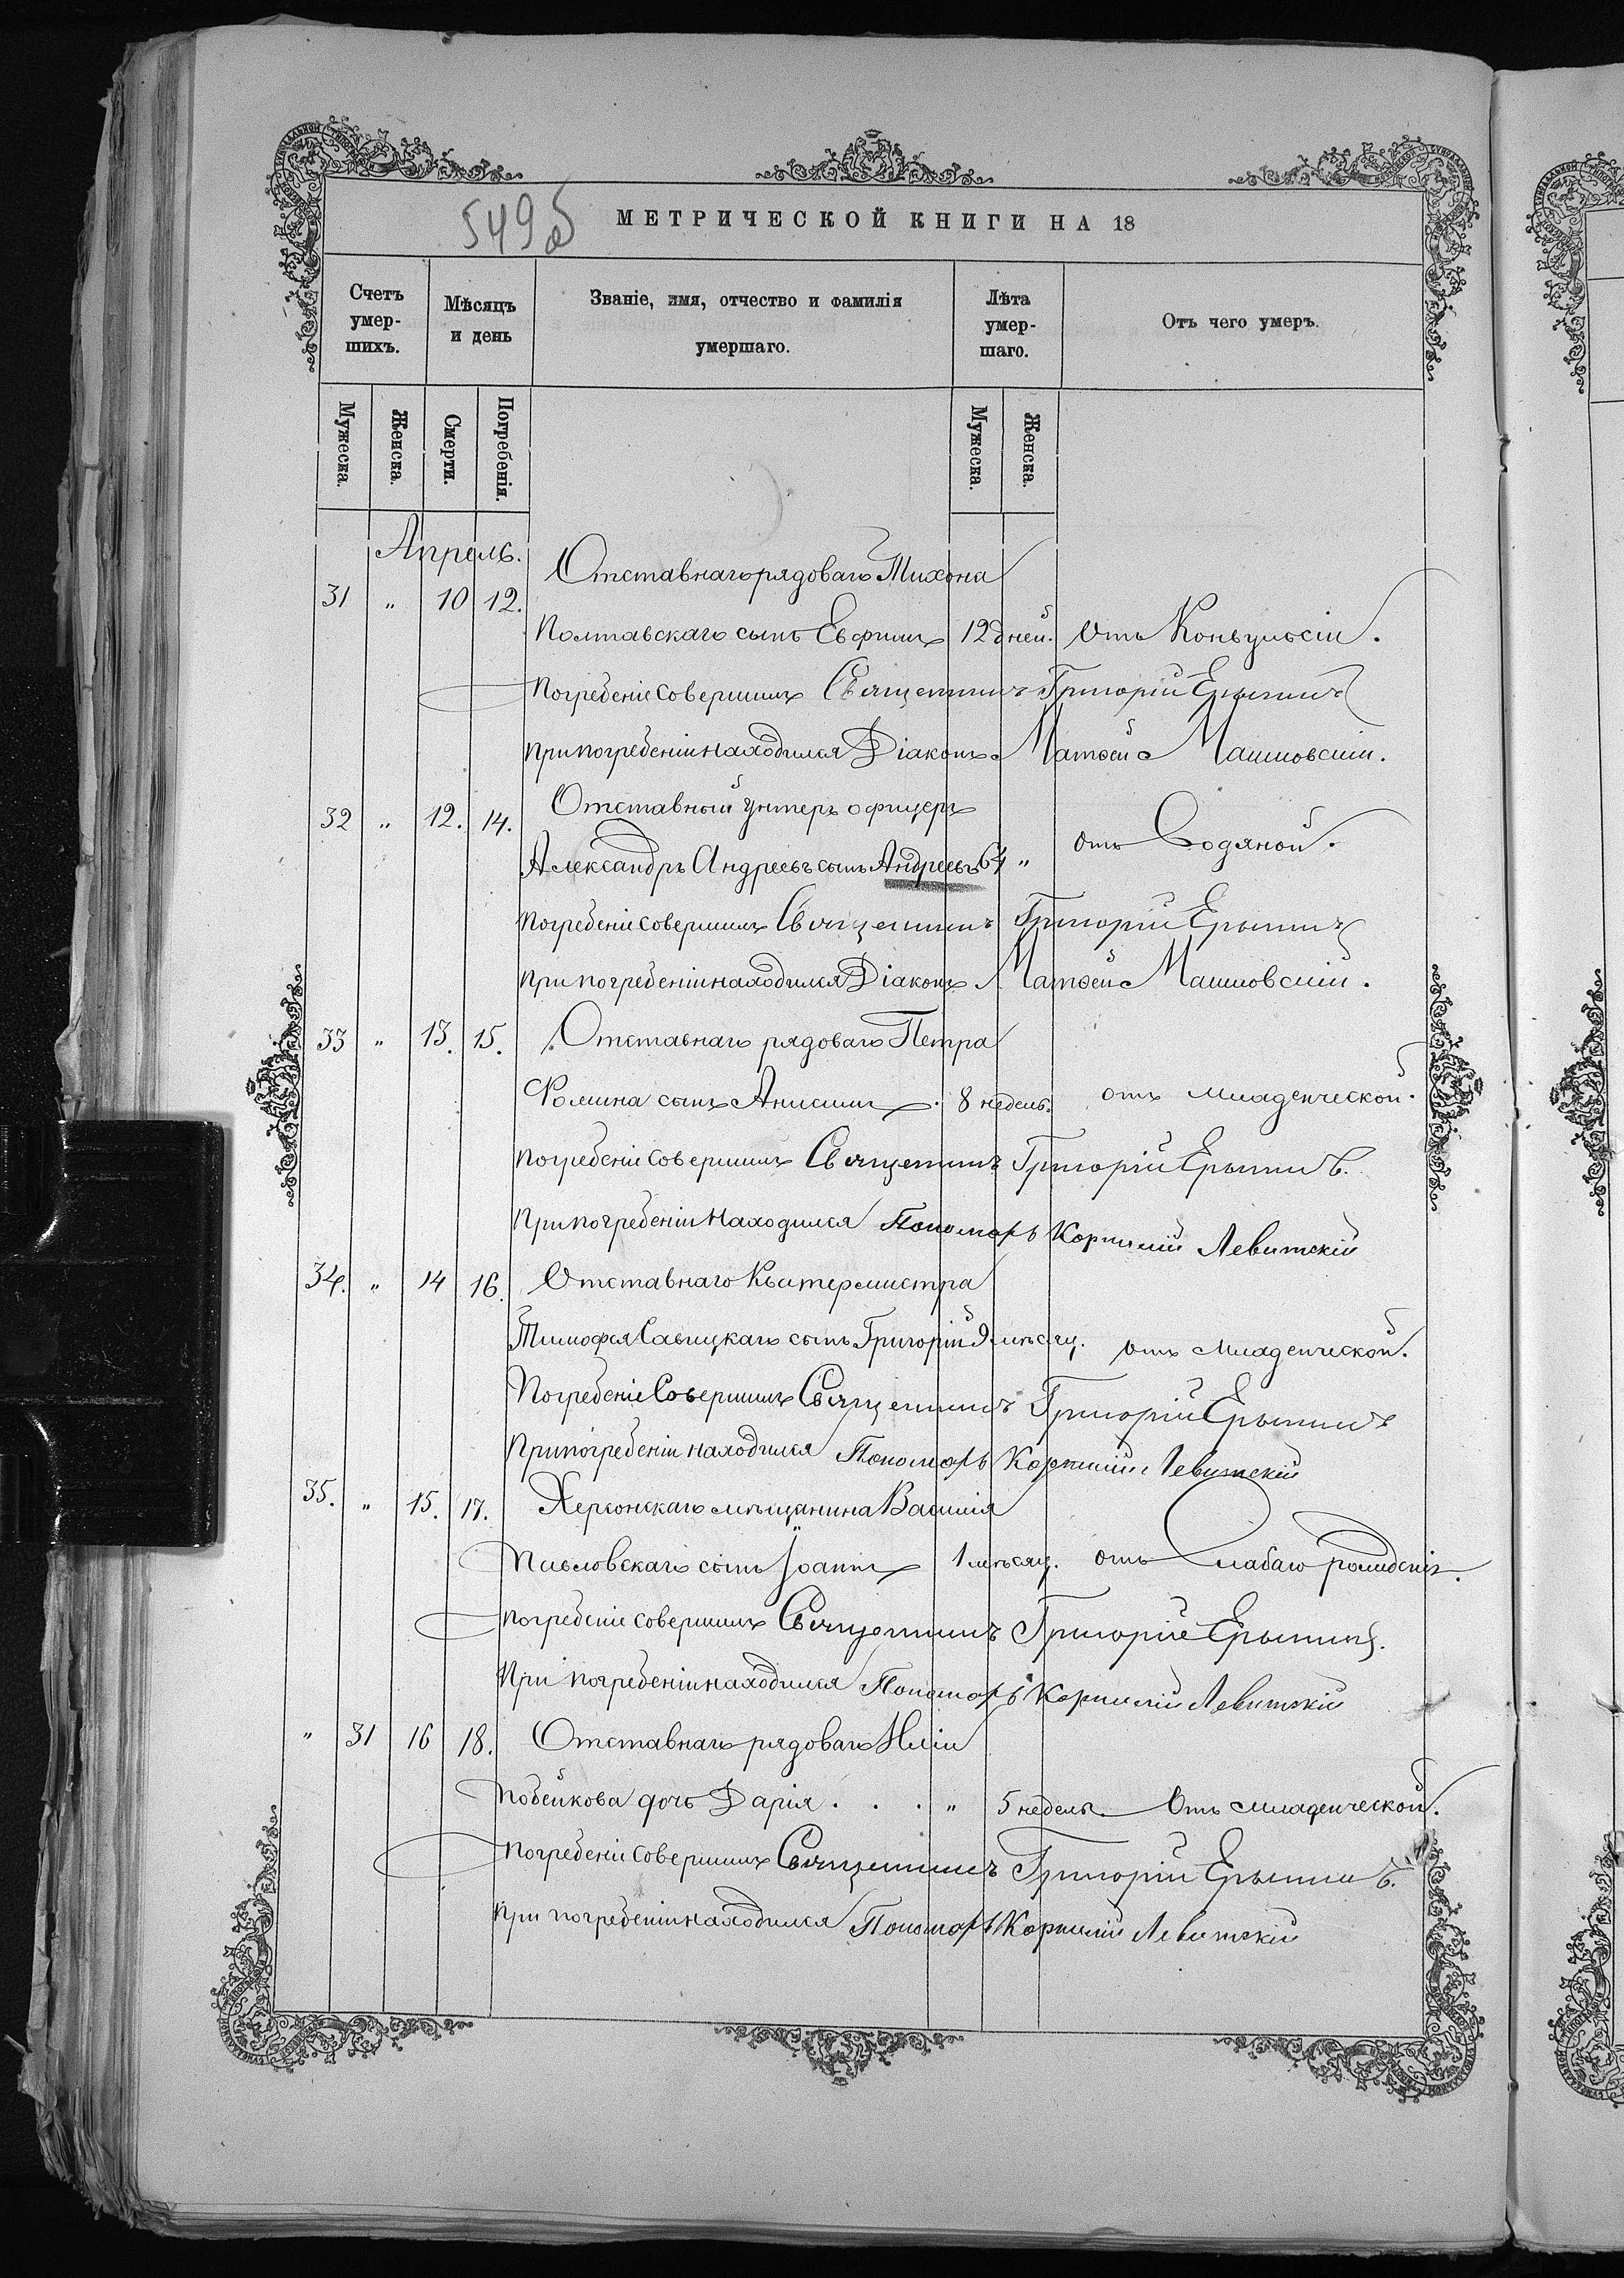 549об
МЕТРИЧЕСКОЙ КНИГИ НА 18
Счетъ умер-шихъ.
Мѣсяцъ и день
Званіе, имя, отчество и фамилія умершаго.
Лѣта умер-шаго.
Отъ чего умеръ.
Мужеска. Женска. Смерти. Погребенія. Мужеска. Женска.
Апрель.
31 " 10 12. Отставнаго рядоваго Тихона
Полтавскаго сынъ Евфимъ 12 дней. Отъ Конвульсіи.
Погребеніе совершилъ Священникъ Григорій
При погребеніи находился Діаконъ Матѳей
32 " 12. 14. Отставный унтеръ офицеръ
Александръ Андреевъ сынъ Андреевъ 64 " отъ Водяной.
Погребеніе совершилъ Священникъ Григорій
При погребеніи находился Діаконъ Матѳей
33 " 13. 15. Отставнаго рядоваго Петра
Фомина сынъ Анисимъ. 8 недель. отъ младенческой.
Погребеніе совершилъ Священникъ Григорій
При погребеніи находился Пономарь Корнилій Левитскій
34. " 14 16. Отставнаго Квитермистра
Тимофея Савицкаго сынъ Григорій 9 мѣсяц. отъ младенческой.
Погребеніе Совершилъ Священникъ Григорій
При погребеніи находился Пономарь Корнилій Левитскій
35. " 15. 17. Херсонскаго мѣщанина Василія
Павловскаго сынъ Іоаннъ 1 мѣсяц. отъ Слабаго рожденія.
Погребеніе совершилъ Священникъ Григорій
При погребеніи находился Пономарь Корнилій Левитскій
" 31 16 18. Отставнаго рядоваго Иліи
Побейкова дочь Дарія . . . " 5 недель. Отъ младенческой.
Погребеніе совершилъ Священникъ Григорій
При погребеніи находился Пономарь Корнилій Левитскій